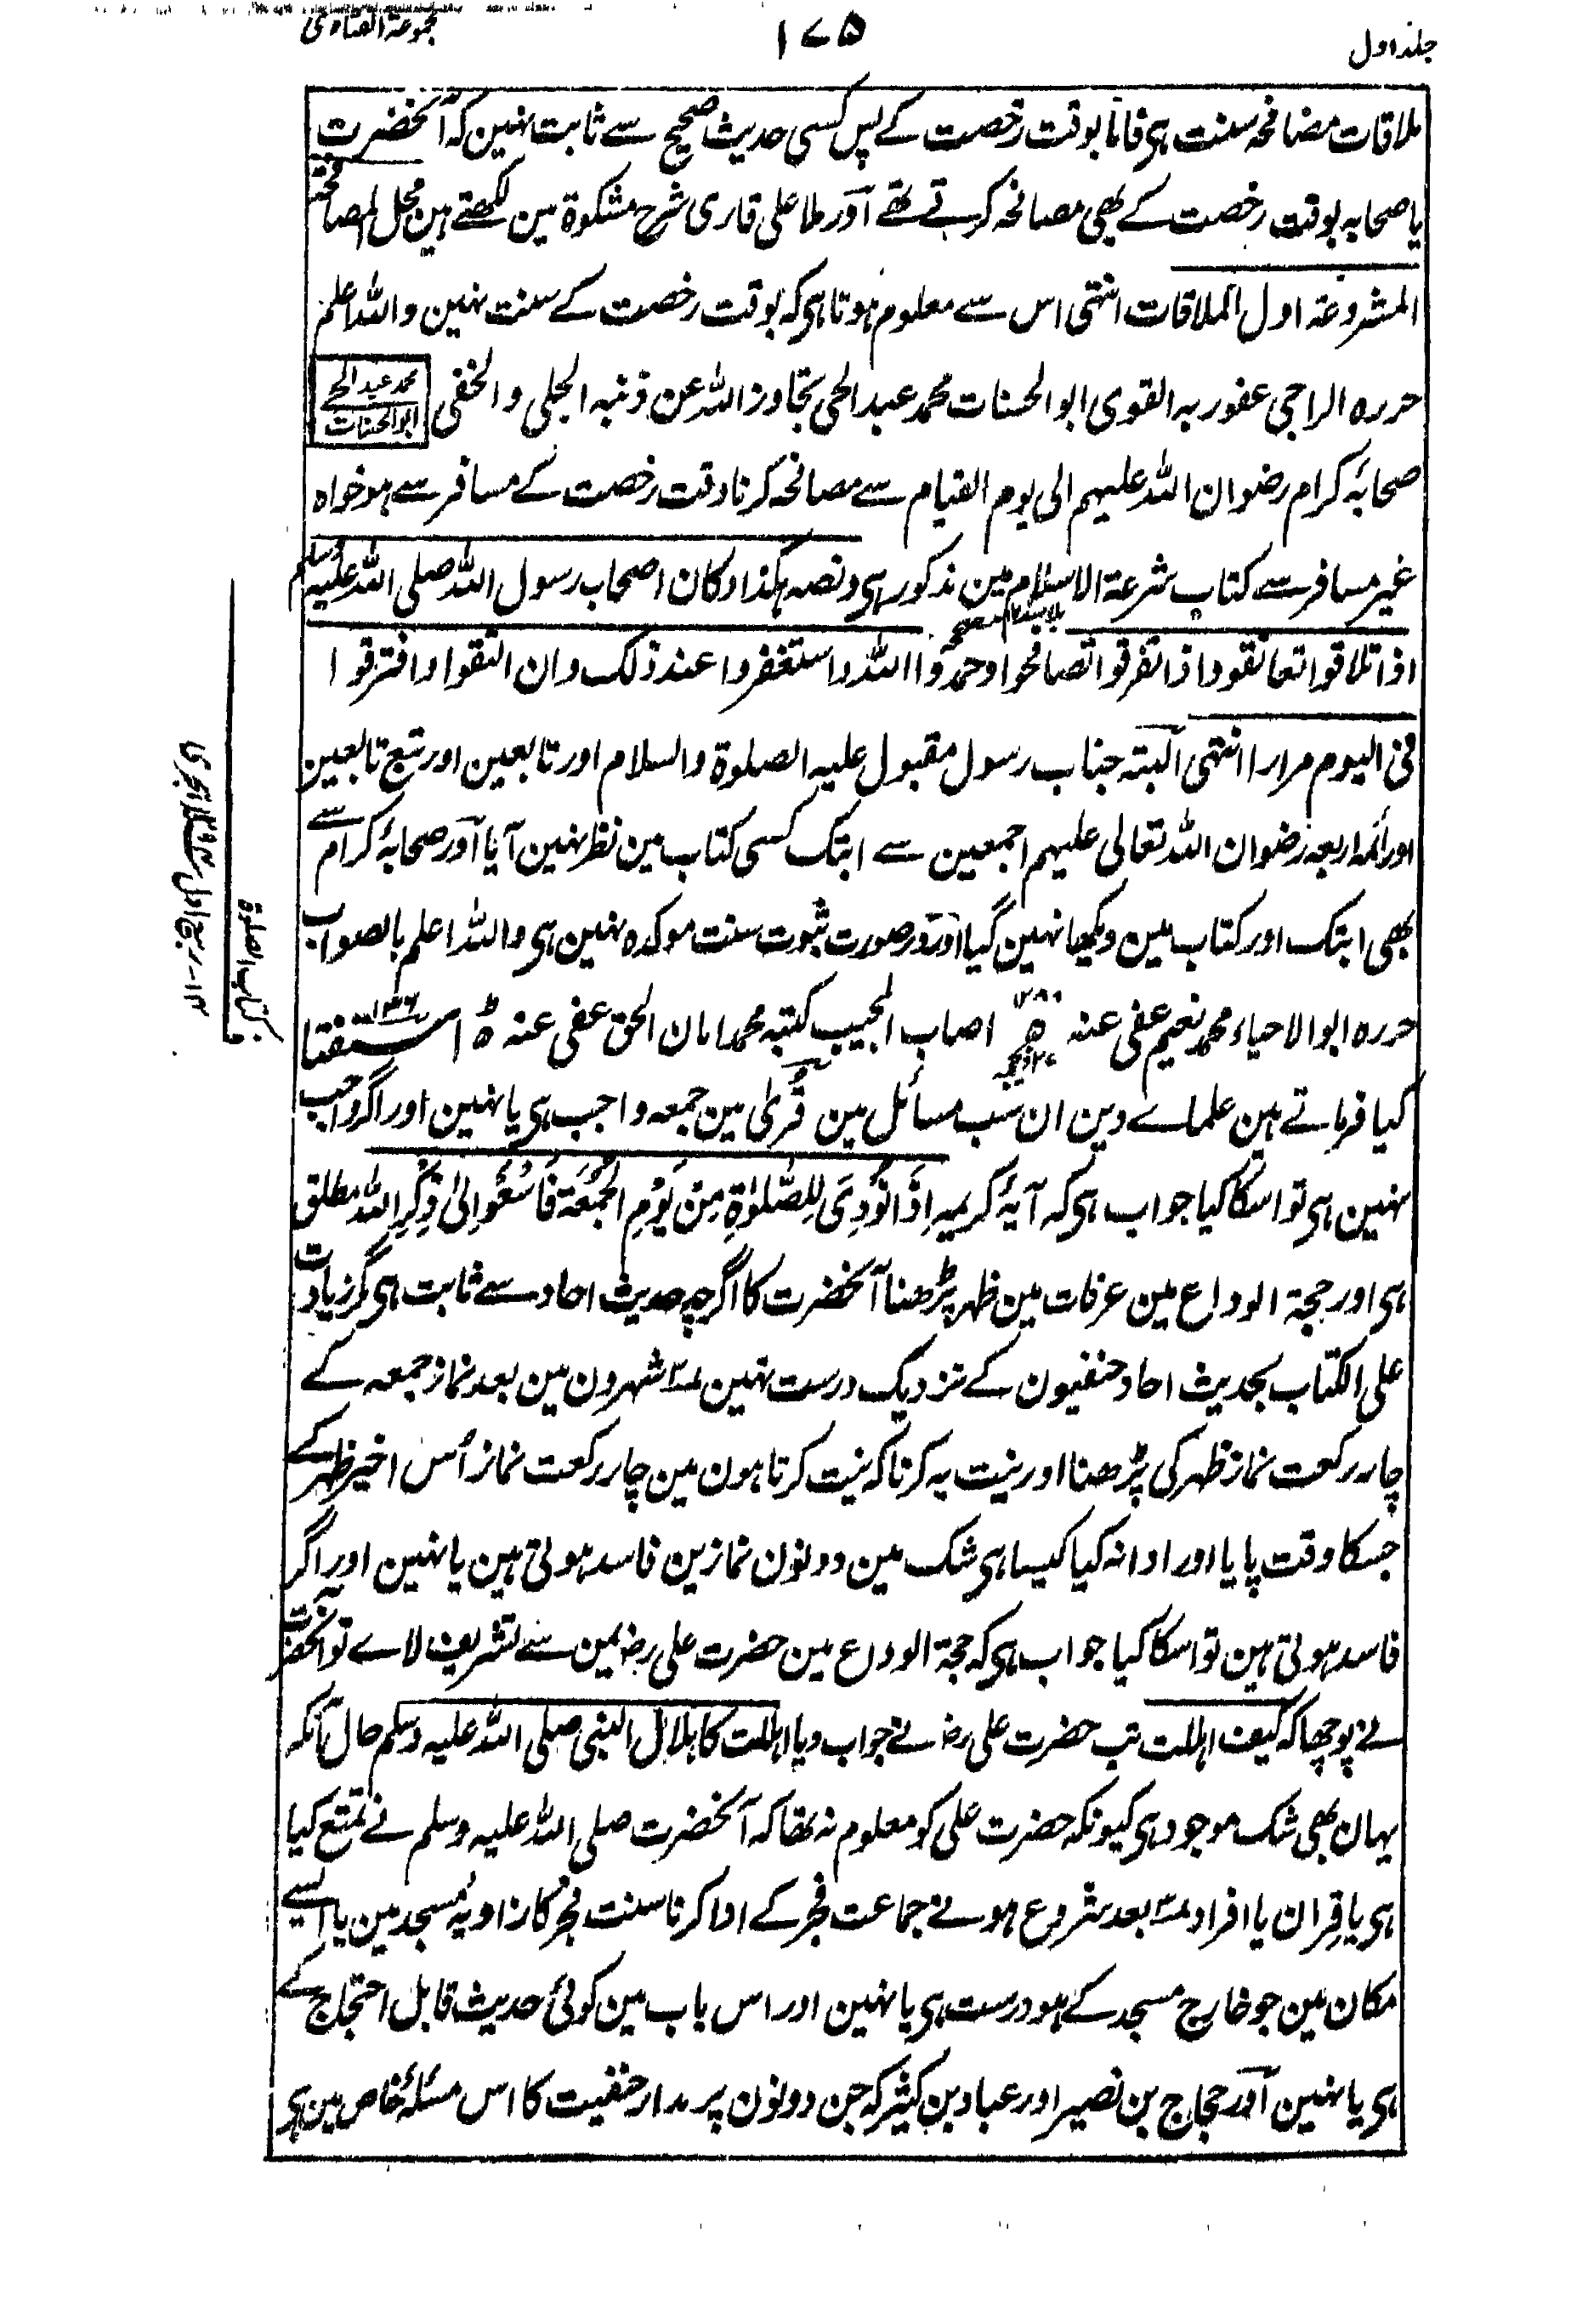 جلد اول
۱۷۵
مجموعۃ الفتاوی
ملاقات مصافحہ سنت ہی فاما بوقت رخصت کے پس کسی حدیث صحیح سے ثابت نہین کہ آنحضرت
یا صحابہ بوقت رخصت کے بھی مصافحہ کرتے تھے اور ملا علی قاری شرح مشکوۃ مین لکھتے ہین محل المصافحۃ
المشروعۃ اول الملاقات انتہی اس سے معلوم ہوتا ہی کہ بوقت رخصت کے سنت نہین واللہ اعلم
حررہ الراجی عفو ربہ القوی ابو الحسنات محمد عبد الحی تجاوز اللہ عن ذنبہ الجلی والخفی
محمد عبد الحی
ابو الحسنات
صحابۂ کرام رضوان اللہ علیہم الی یوم القیام سے مصافحہ کرنا وقت رخصت کے مسافر سے ہو خواہ
غیر مسافر سے کتاب شرعۃ الاسلام مین مذکور ہی ونصہ ہکذا وکان اصحاب رسول اللہ صلی اللہ علیہ وسلم
اذا تلاقوا تعانقوا واذا تفرقوا تصافحوا وحمدوا اللہ واستغفروا عند ذلک وان التقوا وافترقوا
فی الیوم مرارا انتہی البتہ جناب رسول مقبول علیہ الصلوۃ والسلام اور تابعین اور تبع تابعین
اور ائمہ اربعہ رضوان اللہ تعالی علیہم اجمعین سے ابتک کسی کتاب مین نظر نہین آیا اور صحابۂ کرام سے
بھی ابتک اور کتاب مین دیکھا نہین گیا اور در صورت ثبوت سنت موکدہ نہین ہی واللہ اعلم بالصواب
حررہ ابو الاحیاء محمد نعیم عفی عنہ اصاب المجیب کتبہ محمد امان الحق عفی عنہ استفتا
کیا فرماتے ہین علماے دین ان سب مسائل مین قُریٰ مین جمعہ واجب ہی یا نہین اور اگر واجب
نہین ہی تو اسکا کیا جواب ہی کہ آیۂ کریمہ اِذَا نُوْدِیَ لِلصَّلٰوۃِ مِنْ یَّوْمِ الْجُمُعَۃِ فَاسْعَوْا اِلیٰ ذِکْرِ اللہِ مطلق
ہی اور حجۃ الوداع مین عرفات مین ظہر پڑھنا آنحضرت کا اگرچہ حدیث احاد سے ثابت ہی مگر زیادت
علی الکتاب بحدیث احاد حنفیون کے نزدیک درست نہین ۲ شہرون مین بعد نماز جمعہ کے
چار رکعت نماز ظہر کی پڑھنا اور نیت یہ کرنا کہ نیت کرتا ہون مین چار رکعت نماز اُس اخیر ظہر کے
جسکا وقت پایا اور ادا نہ کیا کیسا ہی شک مین دونون نمازین فاسد ہوتی ہین یا نہین اور اگر
فاسد ہوتی ہین تو اسکا کیا جواب ہی کہ حجۃ الوداع مین حضرت علی رض یمن سے تشریف لاے تو آنحضرت
نے پوچھا کہ کیف اہللت تب حضرت علی رض نے جواب دیا اہللت کاہلال النبی صلی اللہ علیہ وسلم حال آنکہ
یہان بھی شک موجود ہی کیونکہ حضرت علی کو معلوم نہ تھا کہ آنحضرت صلی اللہ علیہ وسلم نے تمتع کیا
ہی یا قِران یا افراد ۳ بعد شروع ہونے جماعت فجر کے ادا کرنا سنت فجر کا زاویۂ مسجد مین یا ایسے
مکان مین جو خارج مسجد کے ہو درست ہی یا نہین اور اس باب مین کوئی حدیث قابل احتجاج کے
ہی یا نہین اور حجاج بن نصیر اور عباد بن کثیر کہ جن دونون پر مدار حنفیت کا اس مسئلۂ خاص مین ہی
کتاب الصلوۃ